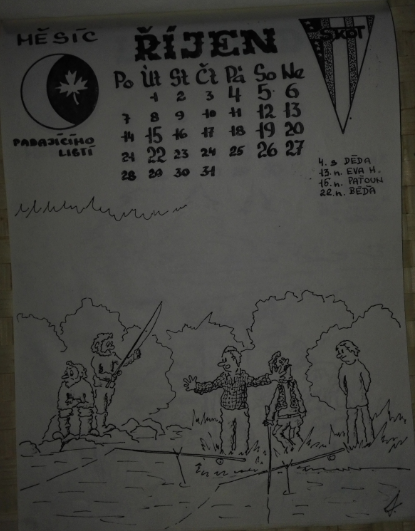 MĚSÍC
PADAJÍCÍHO
LISTÍ
ŘÍJEN
SKOT
Po Út St Čt Pá So Ne
1 2 3 4 5 6
7 8 9 10 11 12 13
14 15 16 17 18 19 20
21 22 23 24 25 26 27
28 29 30 31
4. s DĚDA
13. n. EVA H.
15. n. PAŤOUN
22. n. BĚĎA